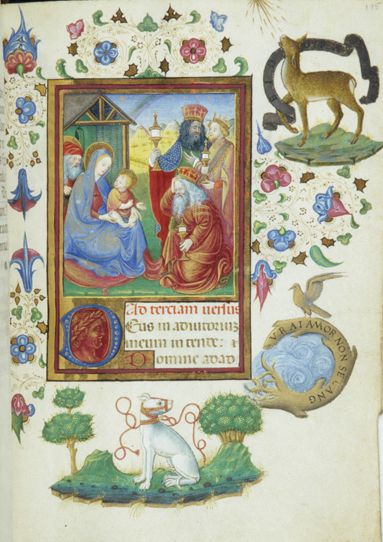 Ad terciam versus
DEus in adiutoriuʒ
meum in tende: &
Domine ad ad
VRAI AMOR NON SE CANG